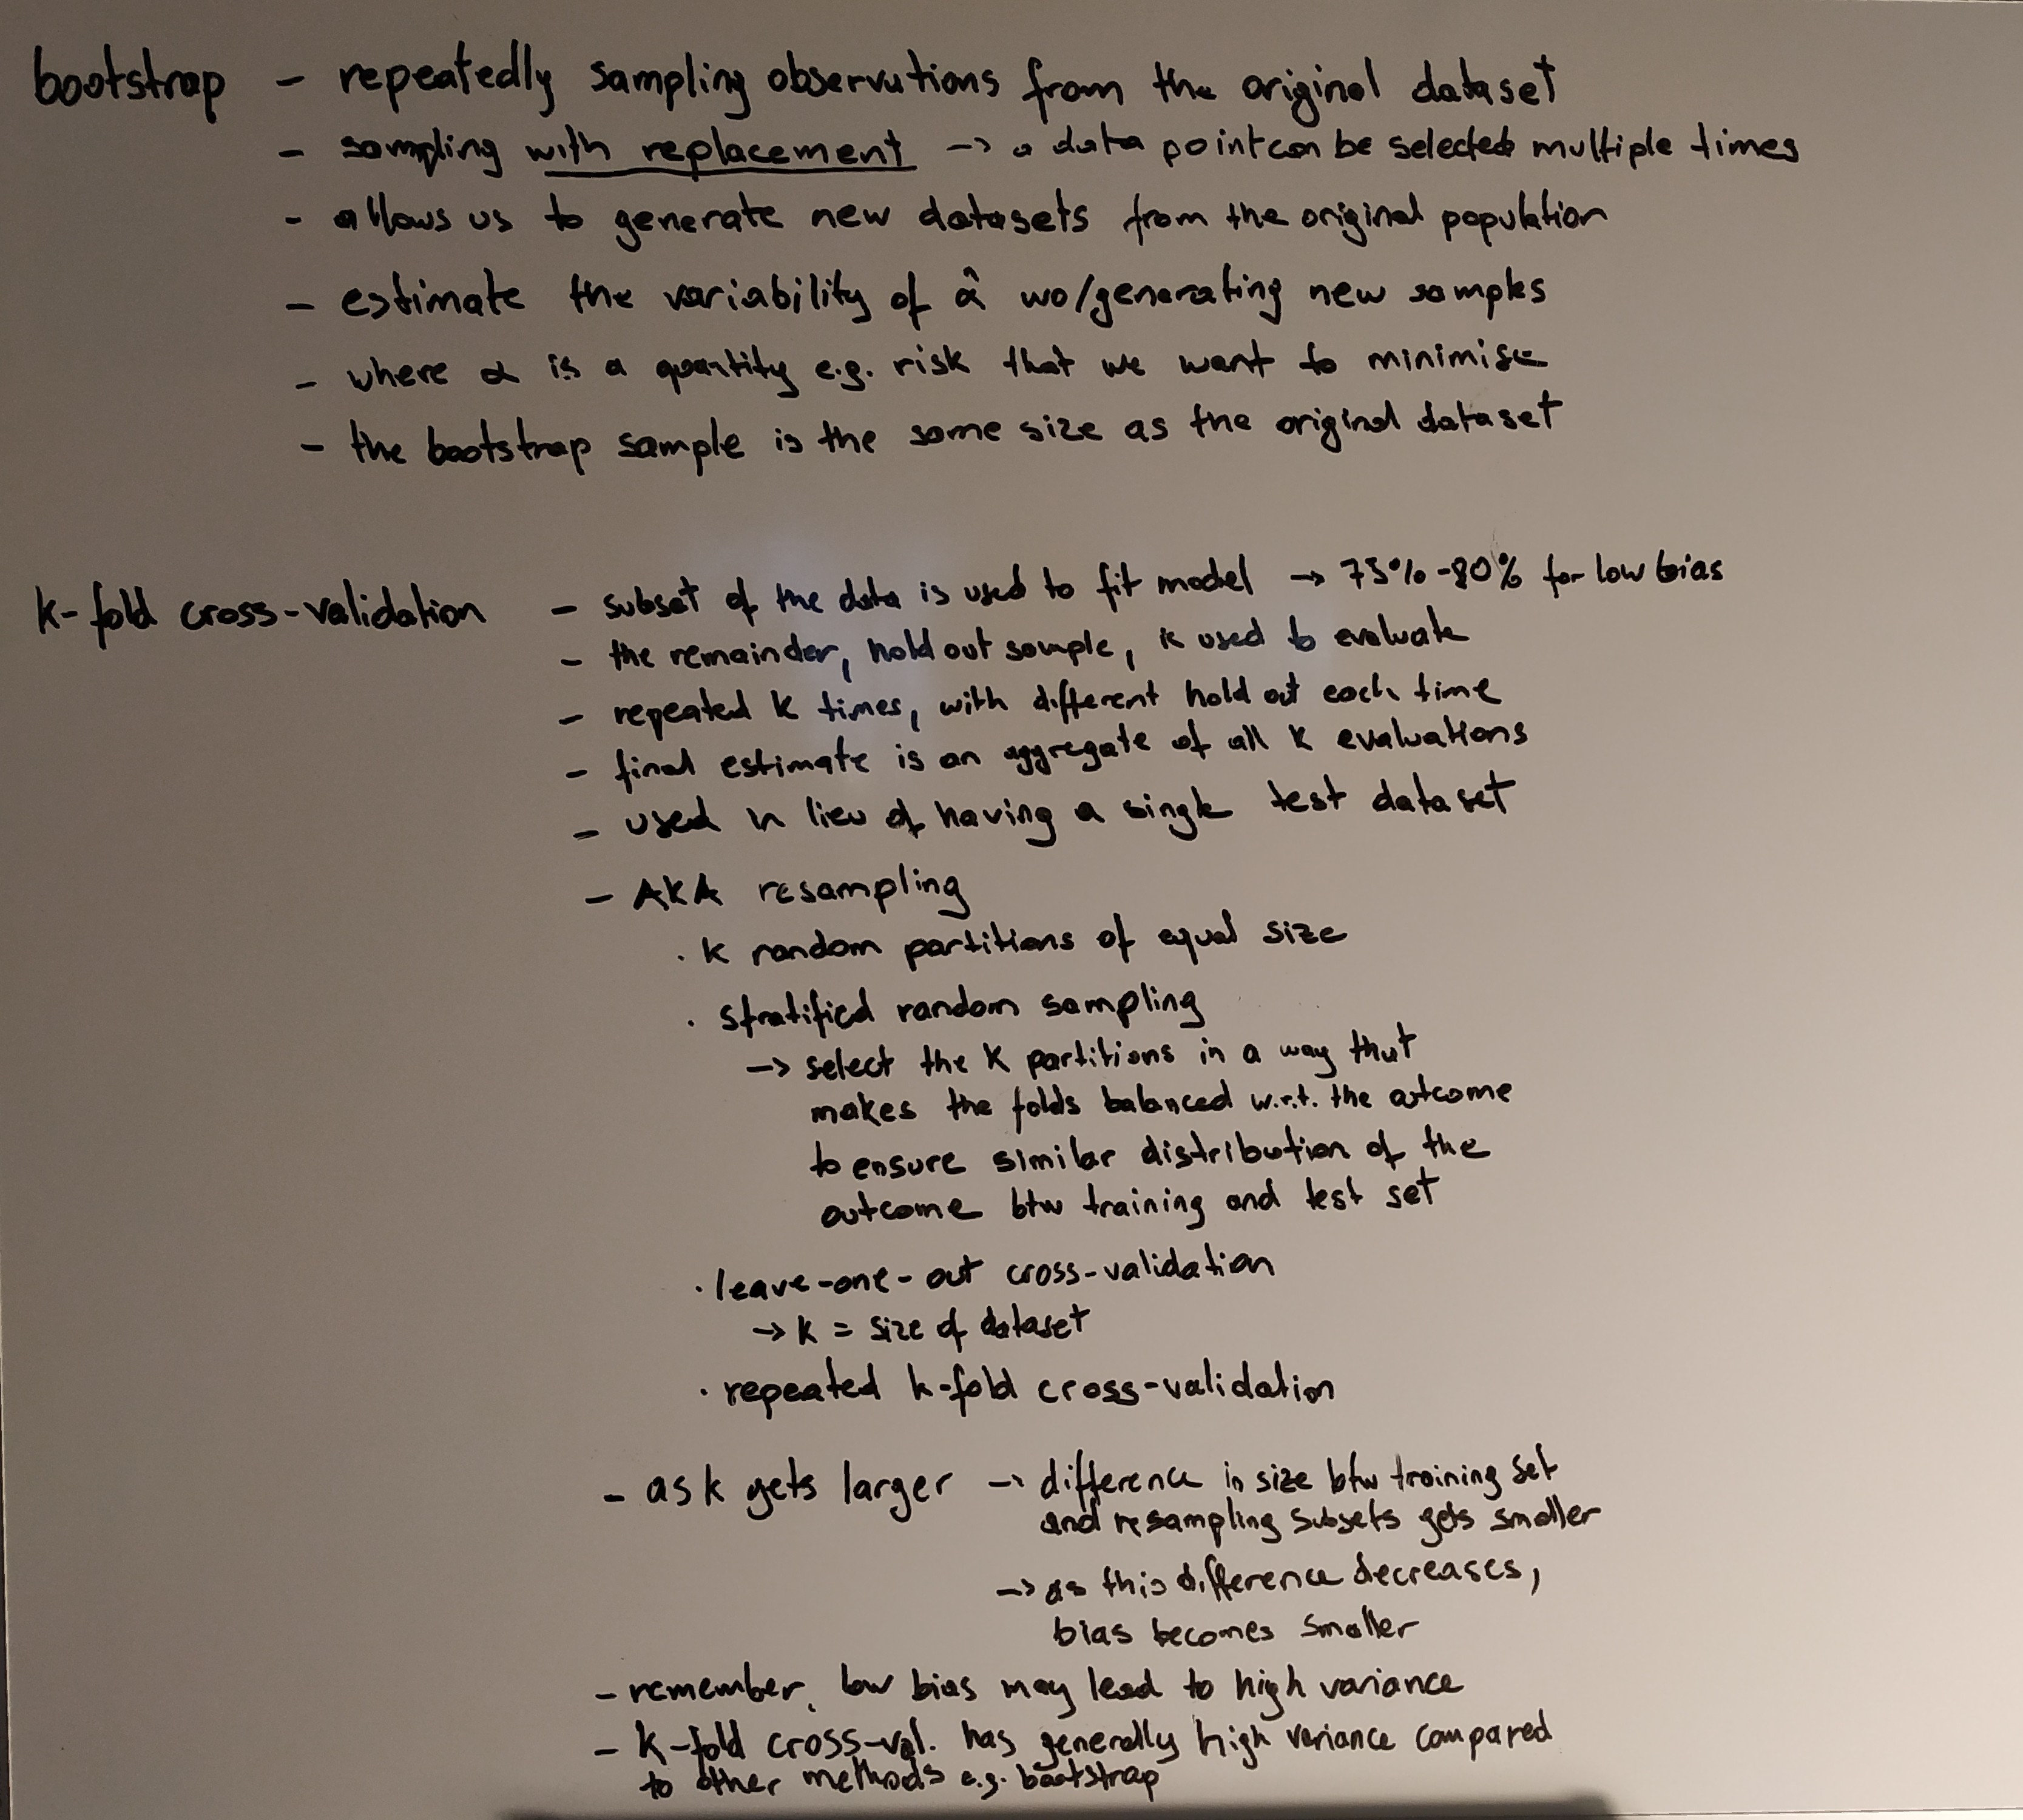 bootstrap - repeatedly sampling observations from the original dataset
- sampling with replacement -> a data point can be selected multiple times
- allows us to generate new datasets from the original population
- estimate the variability of α̂ wo/generating new samples
- where α is a quantity e.g. risk that we want to minimise
- the bootstrap sample is the same size as the original dataset
k-fold cross-validation - subset of the data is used to fit model -> 75%-80% for low bias
- the remainder, hold out sample, is used to evaluate
- repeated k times, with different hold out each time
- final estimate is an aggregate of all k evaluations
- used in lieu of having a single test dataset
- AKA resampling
· k random partitions of equal size
· stratified random sampling
-> select the k partitions in a way that
makes the folds balanced w.r.t. the outcome
to ensure similar distribution of the
outcome btw training and test set
· leave-one-out cross-validation
-> k = size of dataset
· repeated k-fold cross-validation
- as k gets larger -> difference in size btw training set
and resampling subsets gets smaller
-> as this difference decreases,
bias becomes smaller
- remember, low bias may lead to high variance
- k-fold cross-val. has generally high variance compared
to other methods e.g. bootstrap